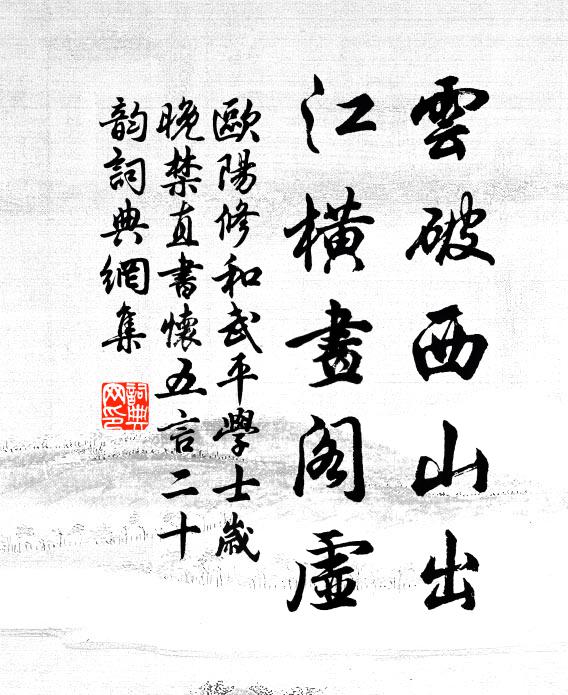 雲破西山出
江橫畫閣虛
歐陽修和武平學士歲
晚禁直書懷五言二十
韵詞典網集
詞典
网印